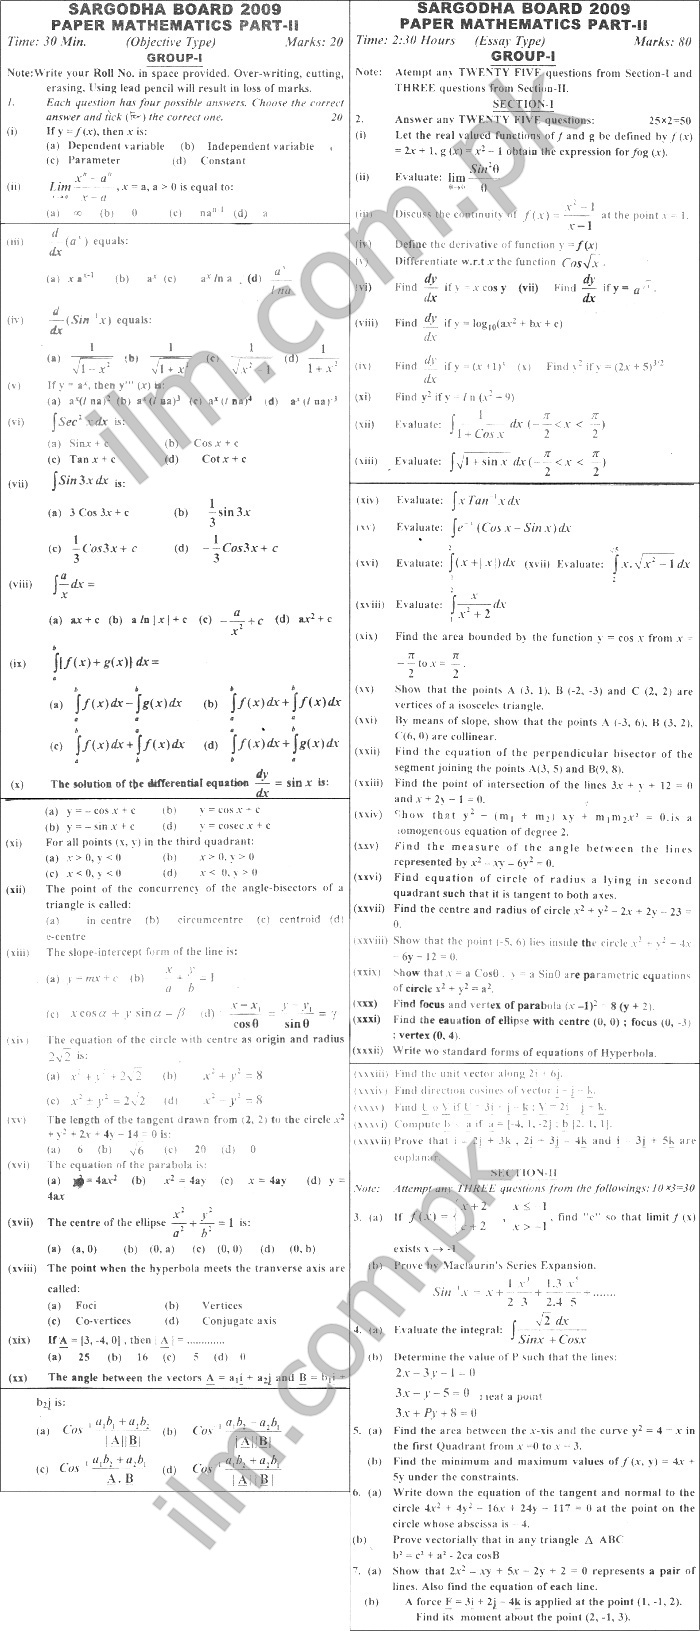 SARGODHA BOARD 2009
PAPER MATHEMATICS PART-II
Time: 30 Min. (Objective Type) Marks: 20
GROUP-I
Note: Write your Roll No. in space provided. Over-writing, cutting,
erasing. Using lead pencil will result in loss of marks.
1. Each question has four possible answers. Choose the correct
answer and tick (✓) the correct one. 20
(i) If y = f (x), then x is:
(a) Dependent variable (b) Independent variable
(c) Parameter (d) Constant
(ii) Lim (xⁿ – aⁿ)/(x – a), x = a, a > 0 is equal to:
(a) ∞ (b) 0 (c) naⁿ⁻¹ (d) a
(iii) d/dx (aˣ) equals:
(a) x aˣ⁻¹ (b) aˣ (c) aˣ ln a (d) aˣ/lna
(iv) d/dx (Sin⁻¹x) equals:
(a) 1/√(1 – x²) (b) 1/√(1 + x²) (c) 1/√(x² – 1) (d) 1/(1 + x²)
(v) If y = aˣ, then y''' (x) is:
(a) aˣ(l na)² (b) aˣ(l na)³ (c) aˣ(l na)⁴ (d) aˣ(l na)⁻³
(vi) ∫Sec² x dx is:
(a) Sinx + c (b) Cos x + c
(c) Tan x + c (d) Cot x + c
(vii) ∫Sin 3x dx is:
(a) 3 Cos 3x + c (b) 1/3 sin 3x
(c) 1/3 Cos3x + c (d) – 1/3 Cos3x + c
(viii) ∫ a/x dx =
(a) ax + c (b) a ln | x | + c (c) – a/x² + c (d) ax² + c
(ix) ∫[f(x) + g(x)] dx =
(a) ∫f(x)dx – ∫g(x)dx (b) ∫f(x)dx + ∫f(x)dx
(c) ∫f(x)dx + ∫f(x)dx (d) ∫f(x)dx + ∫g(x)dx
(x) The solution of the differential equation dy/dx = sin x is:
(a) y = – cos x + c (b) y = cos x + c
(b) y = – sin x + c (d) y = cosec x + c
(xi) For all points (x, y) in the third quadrant:
(a) x > 0, y < 0 (b) x > 0, y > 0
(c) x < 0, y < 0 (d) x < 0, y > 0
(xii) The point of the concurrency of the angle-bisectors of a
triangle is called:
(a) in centre (b) circumcentre (c) centroid (d)
e-centre
(xiii) The slope-intercept form of the line is:
(a) y = mx + c (b) x/a + y/b = 1
(c) x cos α + y sin α = β (d) (x – x₁)/cos θ = (y – y₁)/sin θ = γ
(xiv) The equation of the circle with centre as origin and radius
2√2 is:
(a) x² + y² + 2√2 (b) x² + y² = 8
(c) x² + y² = 2√2 (d) x² – y² = 8
(xv) The length of the tangent drawn from (2, 2) to the circle x²
+ y² + 2x + 4y – 14 = 0 is:
(a) 6 (b) √6 (c) 20 (d) 0
(xvi) The equation of the parabola is:
(a) = 4ax² (b) x² = 4ay (c) x = 4ay (d) y =
4ax
(xvii) The centre of the ellipse x²/a² + y²/b² = 1 is:
(a) (a, 0) (b) (0, a) (c) (0, 0) (d) (0, b)
(xviii) The point when the hyperbola meets the tranverse axis are
called:
(a) Foci (b) Vertices
(c) Co-vertices (d) Conjugate axis
(xix) If A = [3, -4, 0] , then | A | = .............
(a) 25 (b) 16 (c) 5 (d) 0
(xx) The angle between the vectors A = a₁i + a₂j and B = b₁i +
b₂j is:
(a) Cos⁻¹ (a₁b₁ + a₂b₂)/|A||B| (b) Cos⁻¹ (a₁b₂ – a₂b₁)/|A||B|
(c) Cos⁻¹ (a₁b₂ + a₂b₁)/A . B (d) Cos⁻¹ (a₁b₂ + a₂b₁)/|A||B|
SARGODHA BOARD 2009
PAPER MATHEMATICS PART-II
Time: 2:30 Hours (Essay Type) Marks: 80
GROUP-I
Note: Atempt any TWENTY FIVE questions from Section-I and
THREE questions from Section-II.
SECTION-I
2. Answer any TWENTY FIVE questions: 25×2=50
(i) Let the real valued functions of f and g be defined by f (x)
= 2x + 1, g (x) = x² – 1 obtain the expression for fog (x).
(ii) Evaluate: lim θ→0 Sin²θ/θ
(iii) Discuss the continuity of f(x) = (x² – 1)/(x – 1) at the point x = 1.
(iv) Define the derivative of function y = f(x)
(v) Differentiate w.r.t x the function Cos√x .
(vi) Find dy/dx if y = x cos y (vii) Find dy/dx if y = a
(viii) Find dy/dx if y = log₁₀(ax² + bx + c)
(ix) Find dy/dx if y = (x + 1)ˣ (x) Find y² if y = (2x + 5)³ᐟ²
(xi) Find y² if y = l n (x² – 9)
(xii) Evaluate: ∫ 1/(1 + Cos x) dx (– π/2 < x < π/2)
(xiii) Evaluate: ∫√(1 + sin x) dx (– π/2 < x < π/2)
(xiv) Evaluate: ∫x Tan⁻¹ x dx
(xv) Evaluate: ∫e⁻ˣ (Cos x – Sin x) dx
(xvi) Evaluate: ∫(x + | x |) dx (xvii) Evaluate: ∫x.√(x² – 1) dx
(xviii) Evaluate: ∫ x/(x² + 2) dx
(xix) Find the area bounded by the function y = cos x from x =
– π/2 to x = π/2 .
(xx) Show that the points A (3, 1), B (-2, -3) and C (2, 2) are
vertices of a isosceles triangle.
(xxi) By means of slope, show that the points A (-3, 6), B (3, 2),
C(6, 0) are collinear.
(xxii) Find the equation of the perpendicular bisector of the
segment joining the points A(3, 5) and B(9, 8).
(xxiii) Find the point of intersection of the lines 3x + y + 12 = 0
and x + 2y – 1 = 0.
(xxiv) Show that y² – (m₁ + m₂) xy + m₁m₂x² = 0.is a
homogeneous equation of degree 2.
(xxv) Find the measure of the angle between the lines
represented by x² – xy – 6y² = 0.
(xxvi) Find equation of circle of radius a lying in second
quadrant such that it is tangent to both axes.
(xxvii) Find the centre and radius of circle x² + y² – 2x + 2y – 23 =
0.
(xxviii) Show that the point (-5, 6) lies inside the circle x² + y² – 4x
– 6y – 12 = 0.
(xxix) Show that x = a Cosθ , y = a Sinθ are parametric equations
of circle x² + y² = a².
(xxx) Find focus and vertex of parabola (x –1)² = 8 (y + 2).
(xxxi) Find the eauation of ellipse with centre (0, 0) ; focus (0, -3)
; vertex (0, 4).
(xxxii) Write wo standard forms of equations of Hyperbola.
(xxxiii) Find the unit vector along 2i + 6j.
(xxxiv) Find direction cosines of vector i – j – k.
(xxxv) Find U x V if U = 3i + j – k ; V = 2i – j + k.
(xxxvi) Compute b × a if a = [-4, 1, -2] ; b [2, 1, 1].
(xxxvii) Prove that i – 2j + 3k , 2i + 3j – 4k and i – 3j + 5k are
coplanar.
SECTION-II
Note: Attempt any THREE questions from the followings: 10×3=30
3. (a) If f(x) = { x + 2, x ≤ –1
c + 2, x > –1 , find "c" so that limit f (x)
exists x → -1
(b) Prove by Maclaurin's Series Expansion.
Sin⁻¹x = x + 1/2 x³/3 + 1.3/2.4 x⁵/5 + .......
4. (a) Evaluate the integral: ∫ √2 dx/(Sinx + Cosx)
(b) Determine the value of P such that the lines:
2x – 3y – 1 = 0
3x – y – 5 = 0 meat a point
3x + Py + 8 = 0
5. (a) Find the area between the x-xis and the curve y² = 4 – x in
the first Quadrant from x =0 to x = 3.
(b) Find the minimum and maximum values of f (x, y) = 4x +
5y under the constraints.
6. (a) Write down the equation of the tangent and normal to the
circle 4x² + 4y² – 16x + 24y – 117 = 0 at the point on the
circle whose abscissa is – 4.
(b) Prove vectorially that in any triangle Δ ABC
b² = c² + a² - 2ca cosB
7. (a) Show that 2x² – xy + 5x – 2y + 2 = 0 represents a pair of
lines. Also find the equation of each line.
(b) A force F = 3i + 2j – 4k is applied at the point (1, -1, 2).
Find its moment about the point (2, -1, 3).
ilm.com.pk
ilm.com.pk